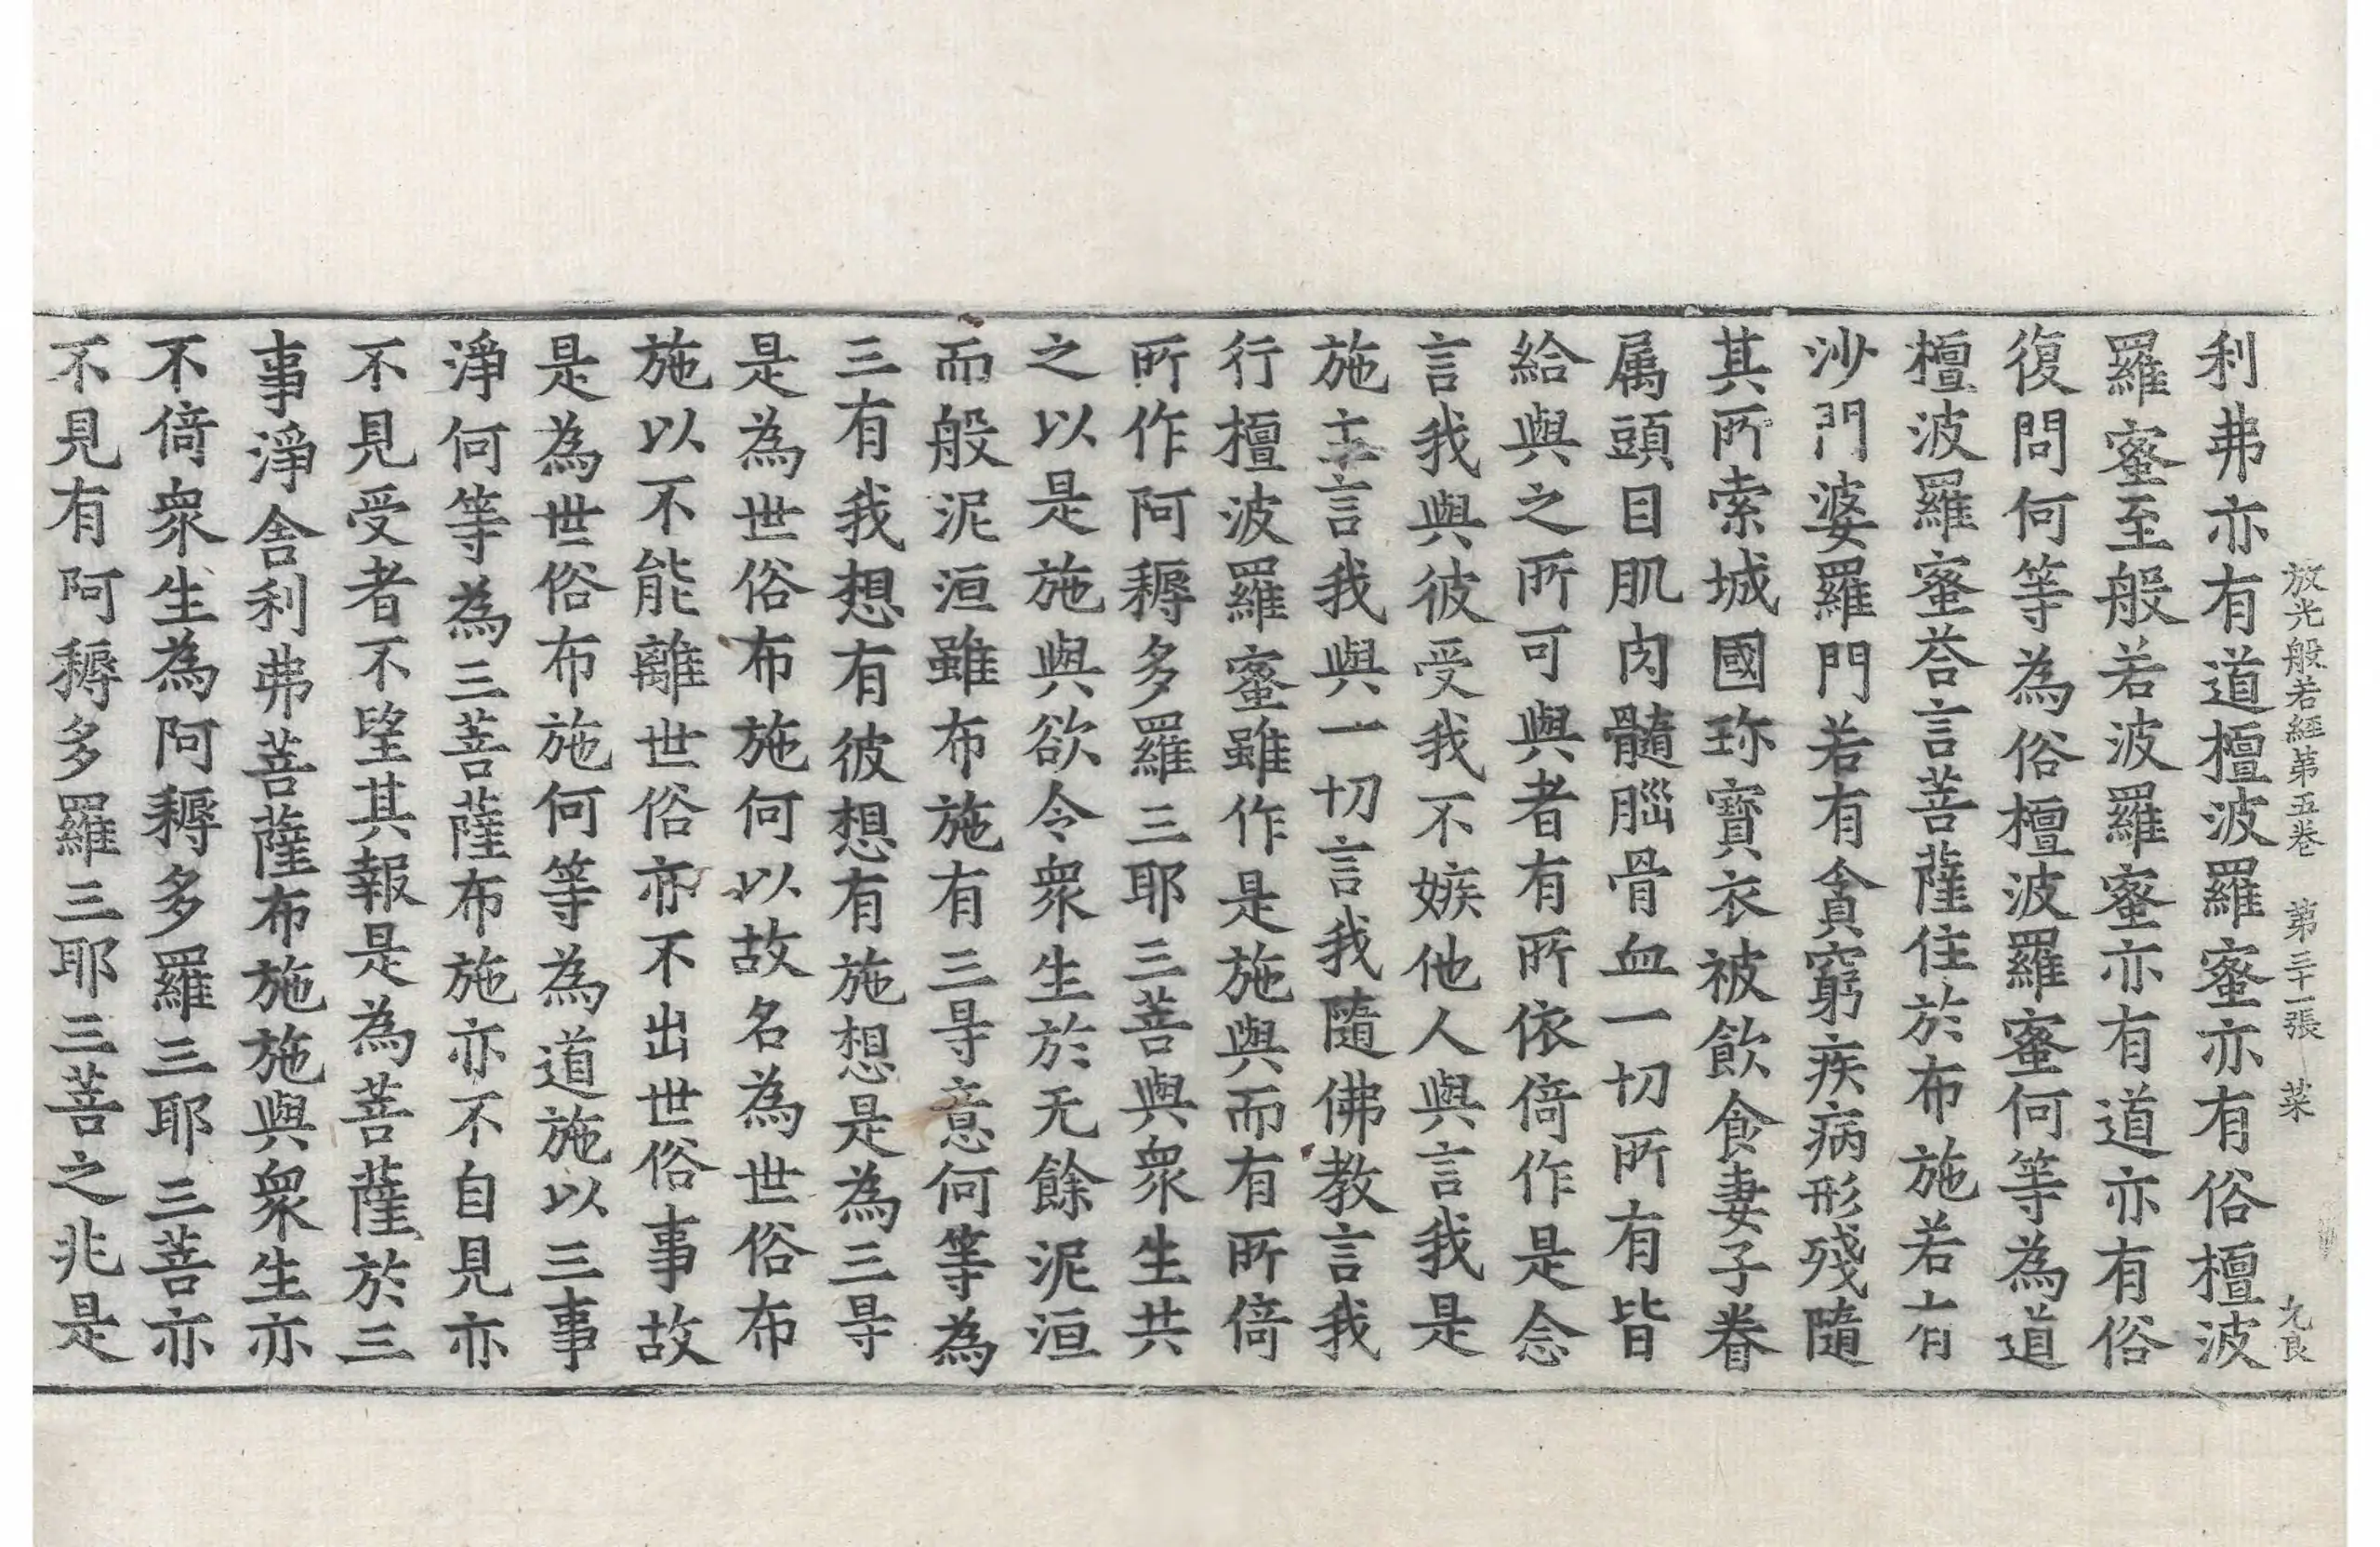 放光般若經第五卷　第三十一張　菜　允良
利弗亦有道檀波羅蜜亦有俗檀波
羅蜜至般若波羅蜜亦有道亦有俗
復問何等為俗檀波羅蜜何等為道
檀波羅蜜荅言菩薩住於布施若有
沙門婆羅門若有貪窮疾病形殘隨
其所索城國珎寶衣被飲食妻子眷
属頭目肌肉髓腦骨血一切所有皆
給與之所可與者有所依倚作是念
言我與彼受我不嫉他人與言我是
施主言我與一切言我隨佛教言我
行檀波羅蜜雖作是施與而有所倚
所作阿耨多羅三耶三菩與衆生共
之以是施與欲令衆生於无餘泥洹
而般泥洹雖布施有三㝵意何等為
三有我想有彼想有施想是為三㝵
是為世俗布施何以故名為世俗布
施以不能離世俗亦不出世俗事故
是為世俗布施何等為道施以三事
淨何等為三菩薩布施亦不自見亦
不見受者不望其報是為菩薩於三
事淨舍利弗菩薩布施施與衆生亦
不倚衆生為阿耨多羅三耶三菩亦
不見有阿耨多羅三耶三菩之兆是